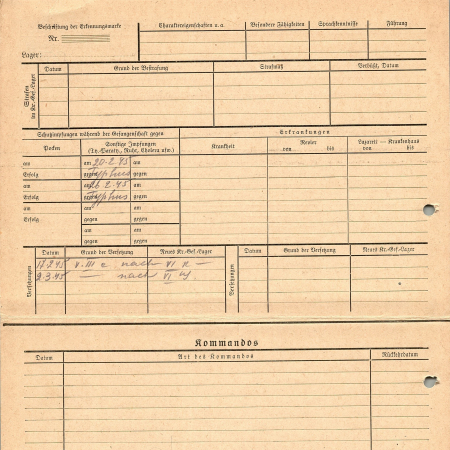 Beschriftung der Erkennungsmarke
Nr.
Lager:
Charaktereigenschaften u. a.
Besondere Fähigkeiten
Sprachkenntnisse
Führung
Strafen im Kr.-Gef.-Lager
Datum
Grund der Bestrafung
Strafmaß
Verbüßt, Datum
Schutzimpfungen während der Gefangenschaft gegen
Erkrankungen
Pocken
Sonstige Impfungen
(Ty.-Paraty., Ruhr, Cholera usw.)
Krankheit
Revier
von bis
Lazarett — Krankenhaus
von bis
am am 20.2.45 am
Erfolg gegen Typhus gegen
am am 26.2.45 am
Erfolg gegen Typhus gegen
am am am
Erfolg gegen gegen
am am
gegen gegen
Versetzungen
Datum Grund der Versetzung Neues Kr.-Gef.-Lager
nach VI
2.3.45 — nach VI
Versetzungen
Datum Grund der Versetzung Neues Kr.-Gef.-Lager
Kommandos
Datum Art des Kommandos Rückkehrdatum